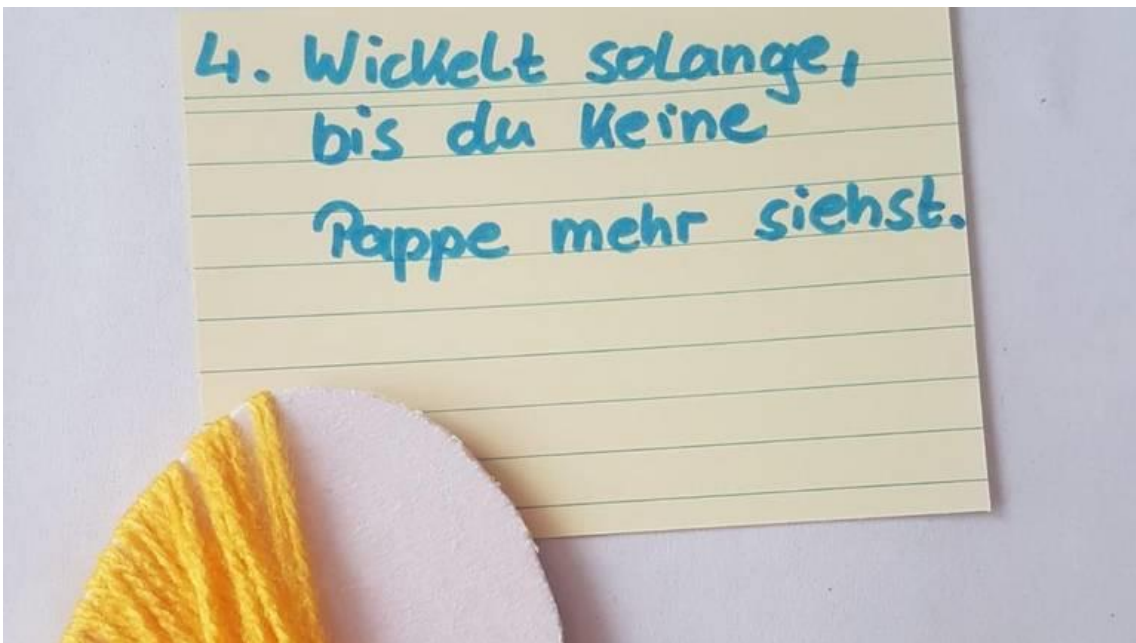 4. Wickelt solange,
bis du keine
Pappe mehr siehst.